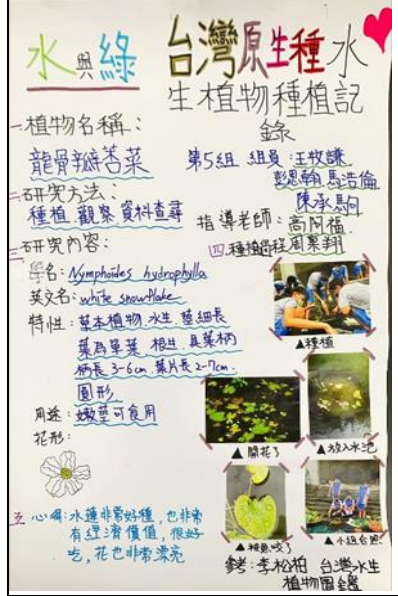 水與綠
台灣原生種水
生植物種植記
錄
一.植物名稱：
龍骨瓣莕菜
第5組 組員：王牧謙
彭思翰 馬浩倫
陳承駒
指導老師：高阿福
周杲翔
二.研究方法：
種植.觀察.資料查尋
三.研究內容：
學名：Nymphoides hydrophylla
英文名：white snowflake
特性：草本植物.水生.莖細長
葉為單葉.根生.具葉柄
柄長3-6cm.葉片長2-7cm.
圓形.
用途：嫩莖可食用
花形：
四.種植過程
▲種植
▲開花了
▲放入水池
▲被魚咬了
▲小組合照
五.心得：水蓮非常好種，也非常
有經濟價值，很好
吃，花也非常漂亮
參考：李松柏 台灣水生
植物圖鑑